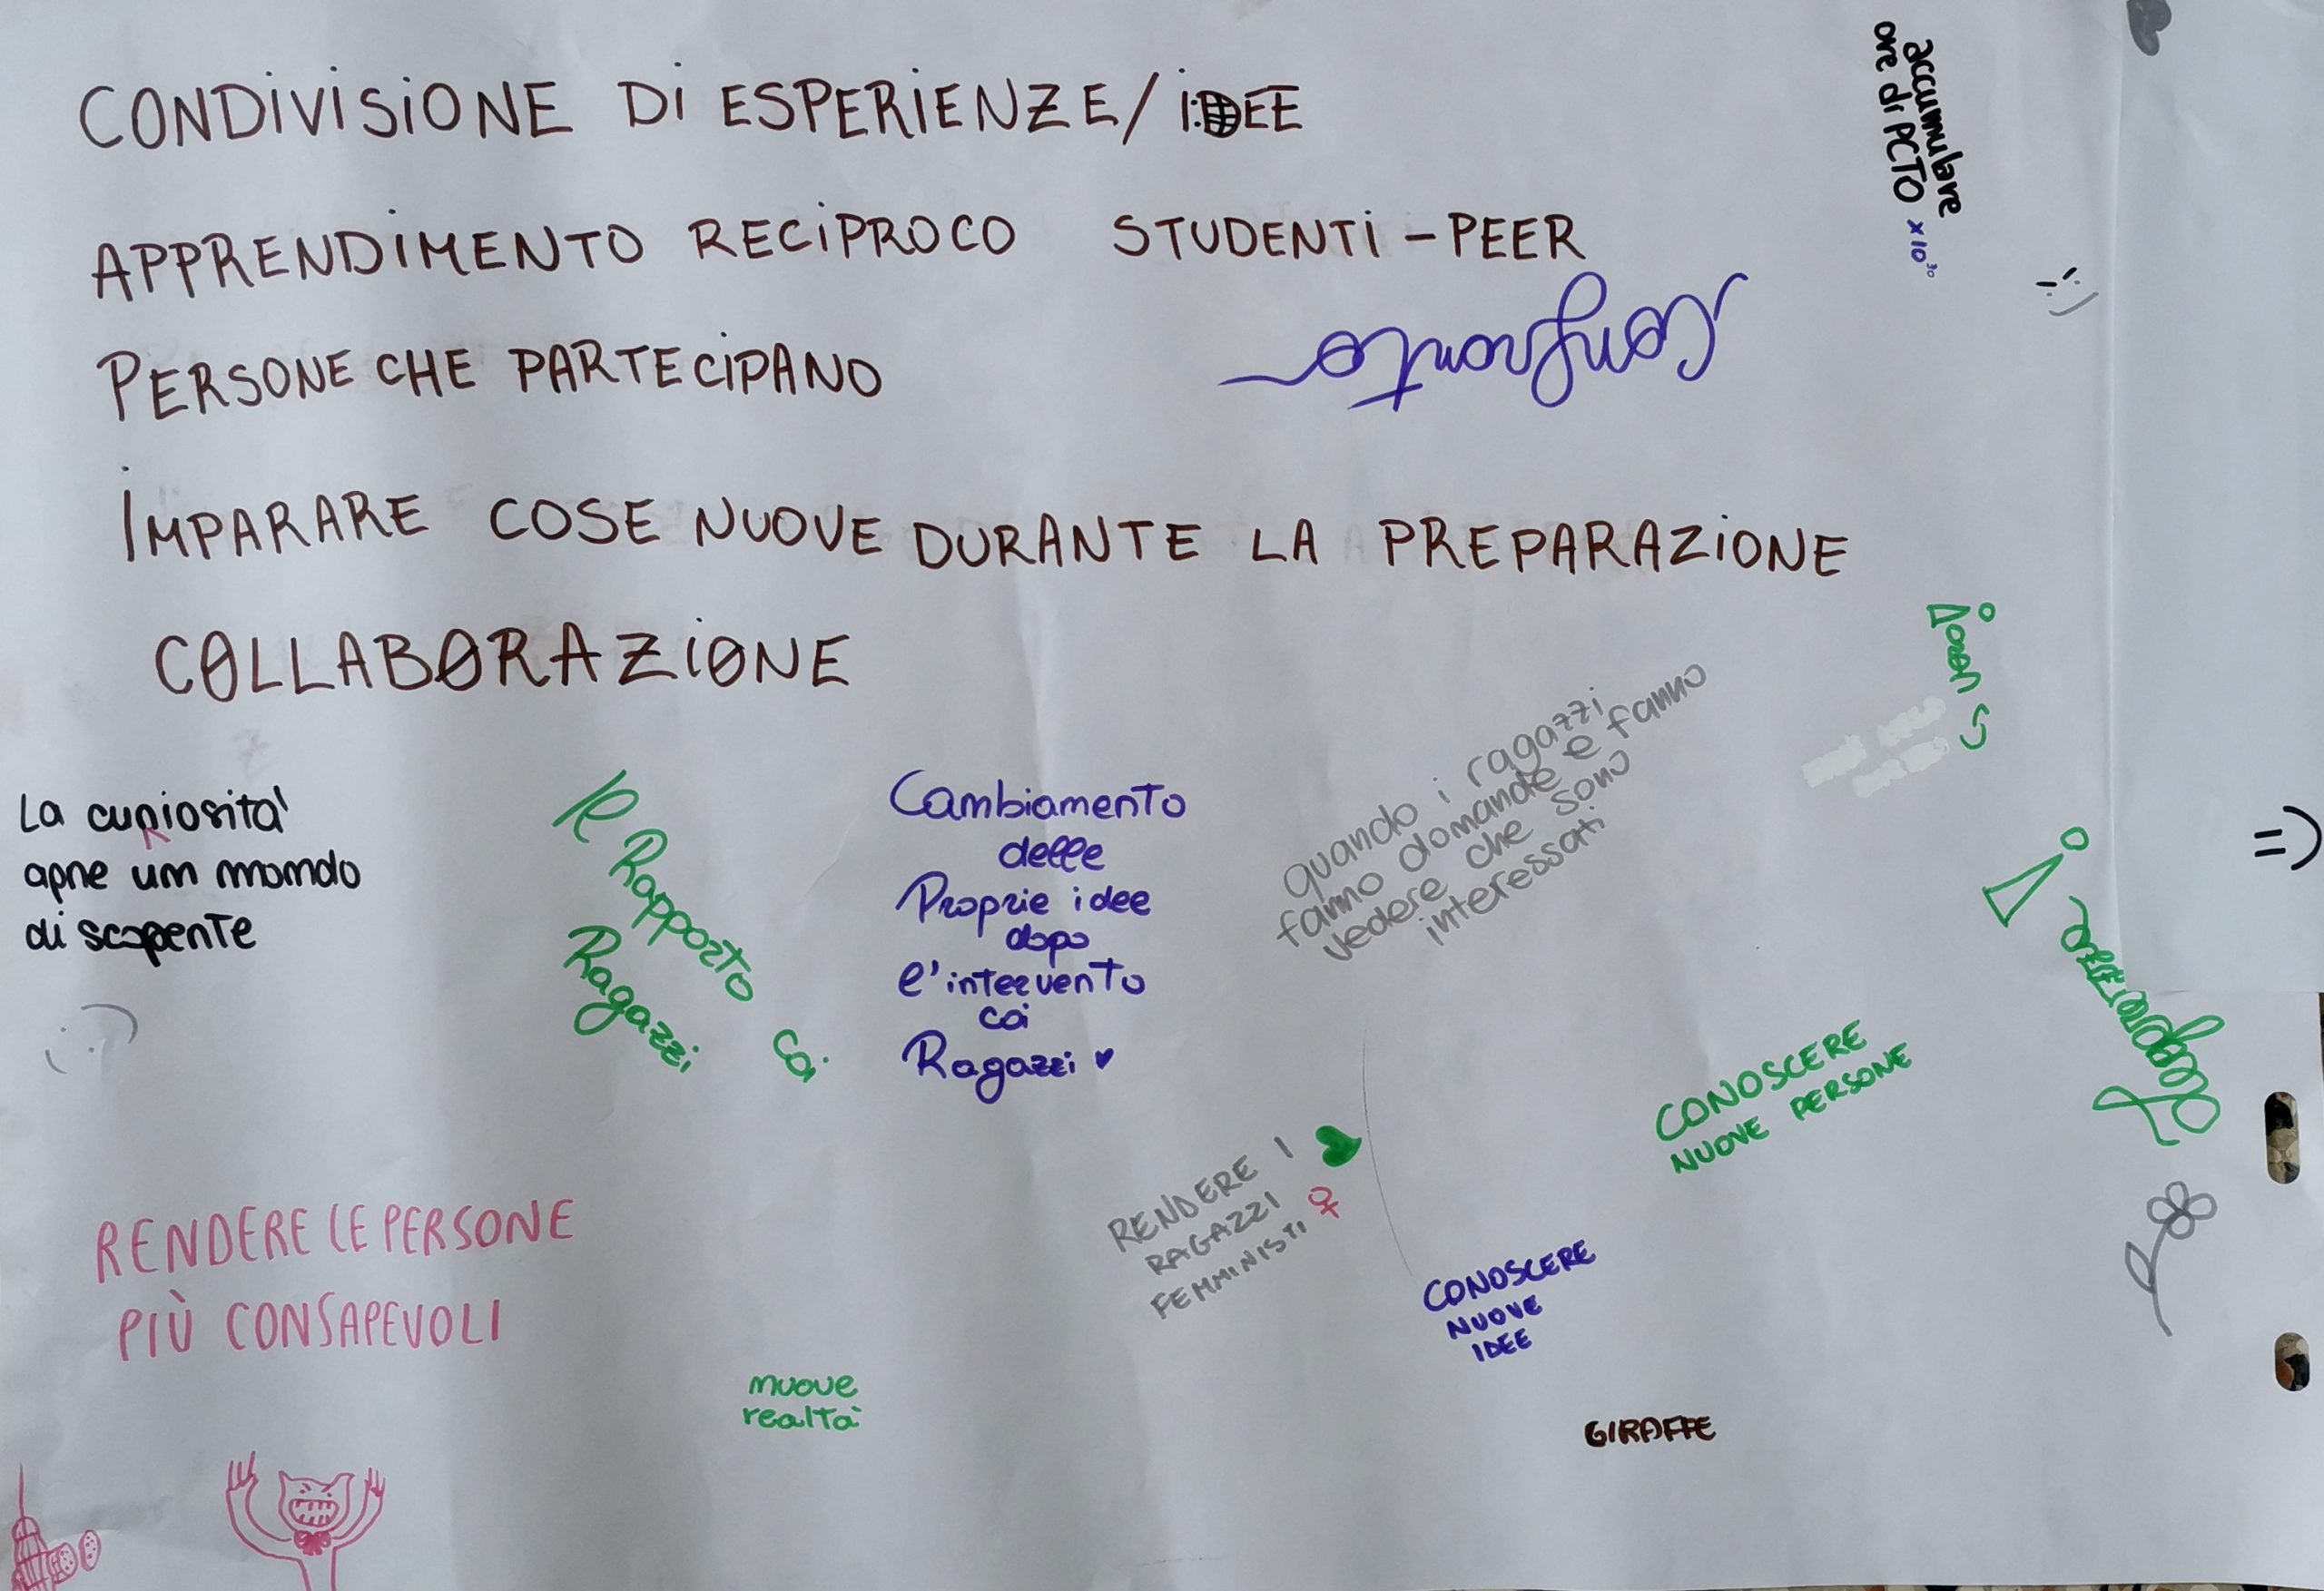 CONDIVISIONE DI ESPERIENZE/IDEE
APPRENDIMENTO RECIPROCO STUDENTI-PEER
PERSONE CHE PARTECIPANO
Confronto
IMPARARE COSE NUOVE DURANTE LA PREPARAZIONE
COLLABORAZIONE
accumulare
ore di PCTO x10³⁰
:)
La curiosità
R
apre un mondo
di scoperte
Il Rapporto coi
Ragazzi
Cambiamento
delle
Proprie idee
dopo
l'intervento
coi
Ragazzi ♥
quando i ragazzi
fanno domande e fanno
vedere che sono
interessati
=)
CONOSCERE
NUOVE PERSONE
RENDERE I
RAGAZZI
FEMMINISTI ♀
CONOSCERE
NUOVE
IDEE
RENDERE LE PERSONE
PIÙ CONSAPEVOLI
nuove
realtà
GIRAFFE